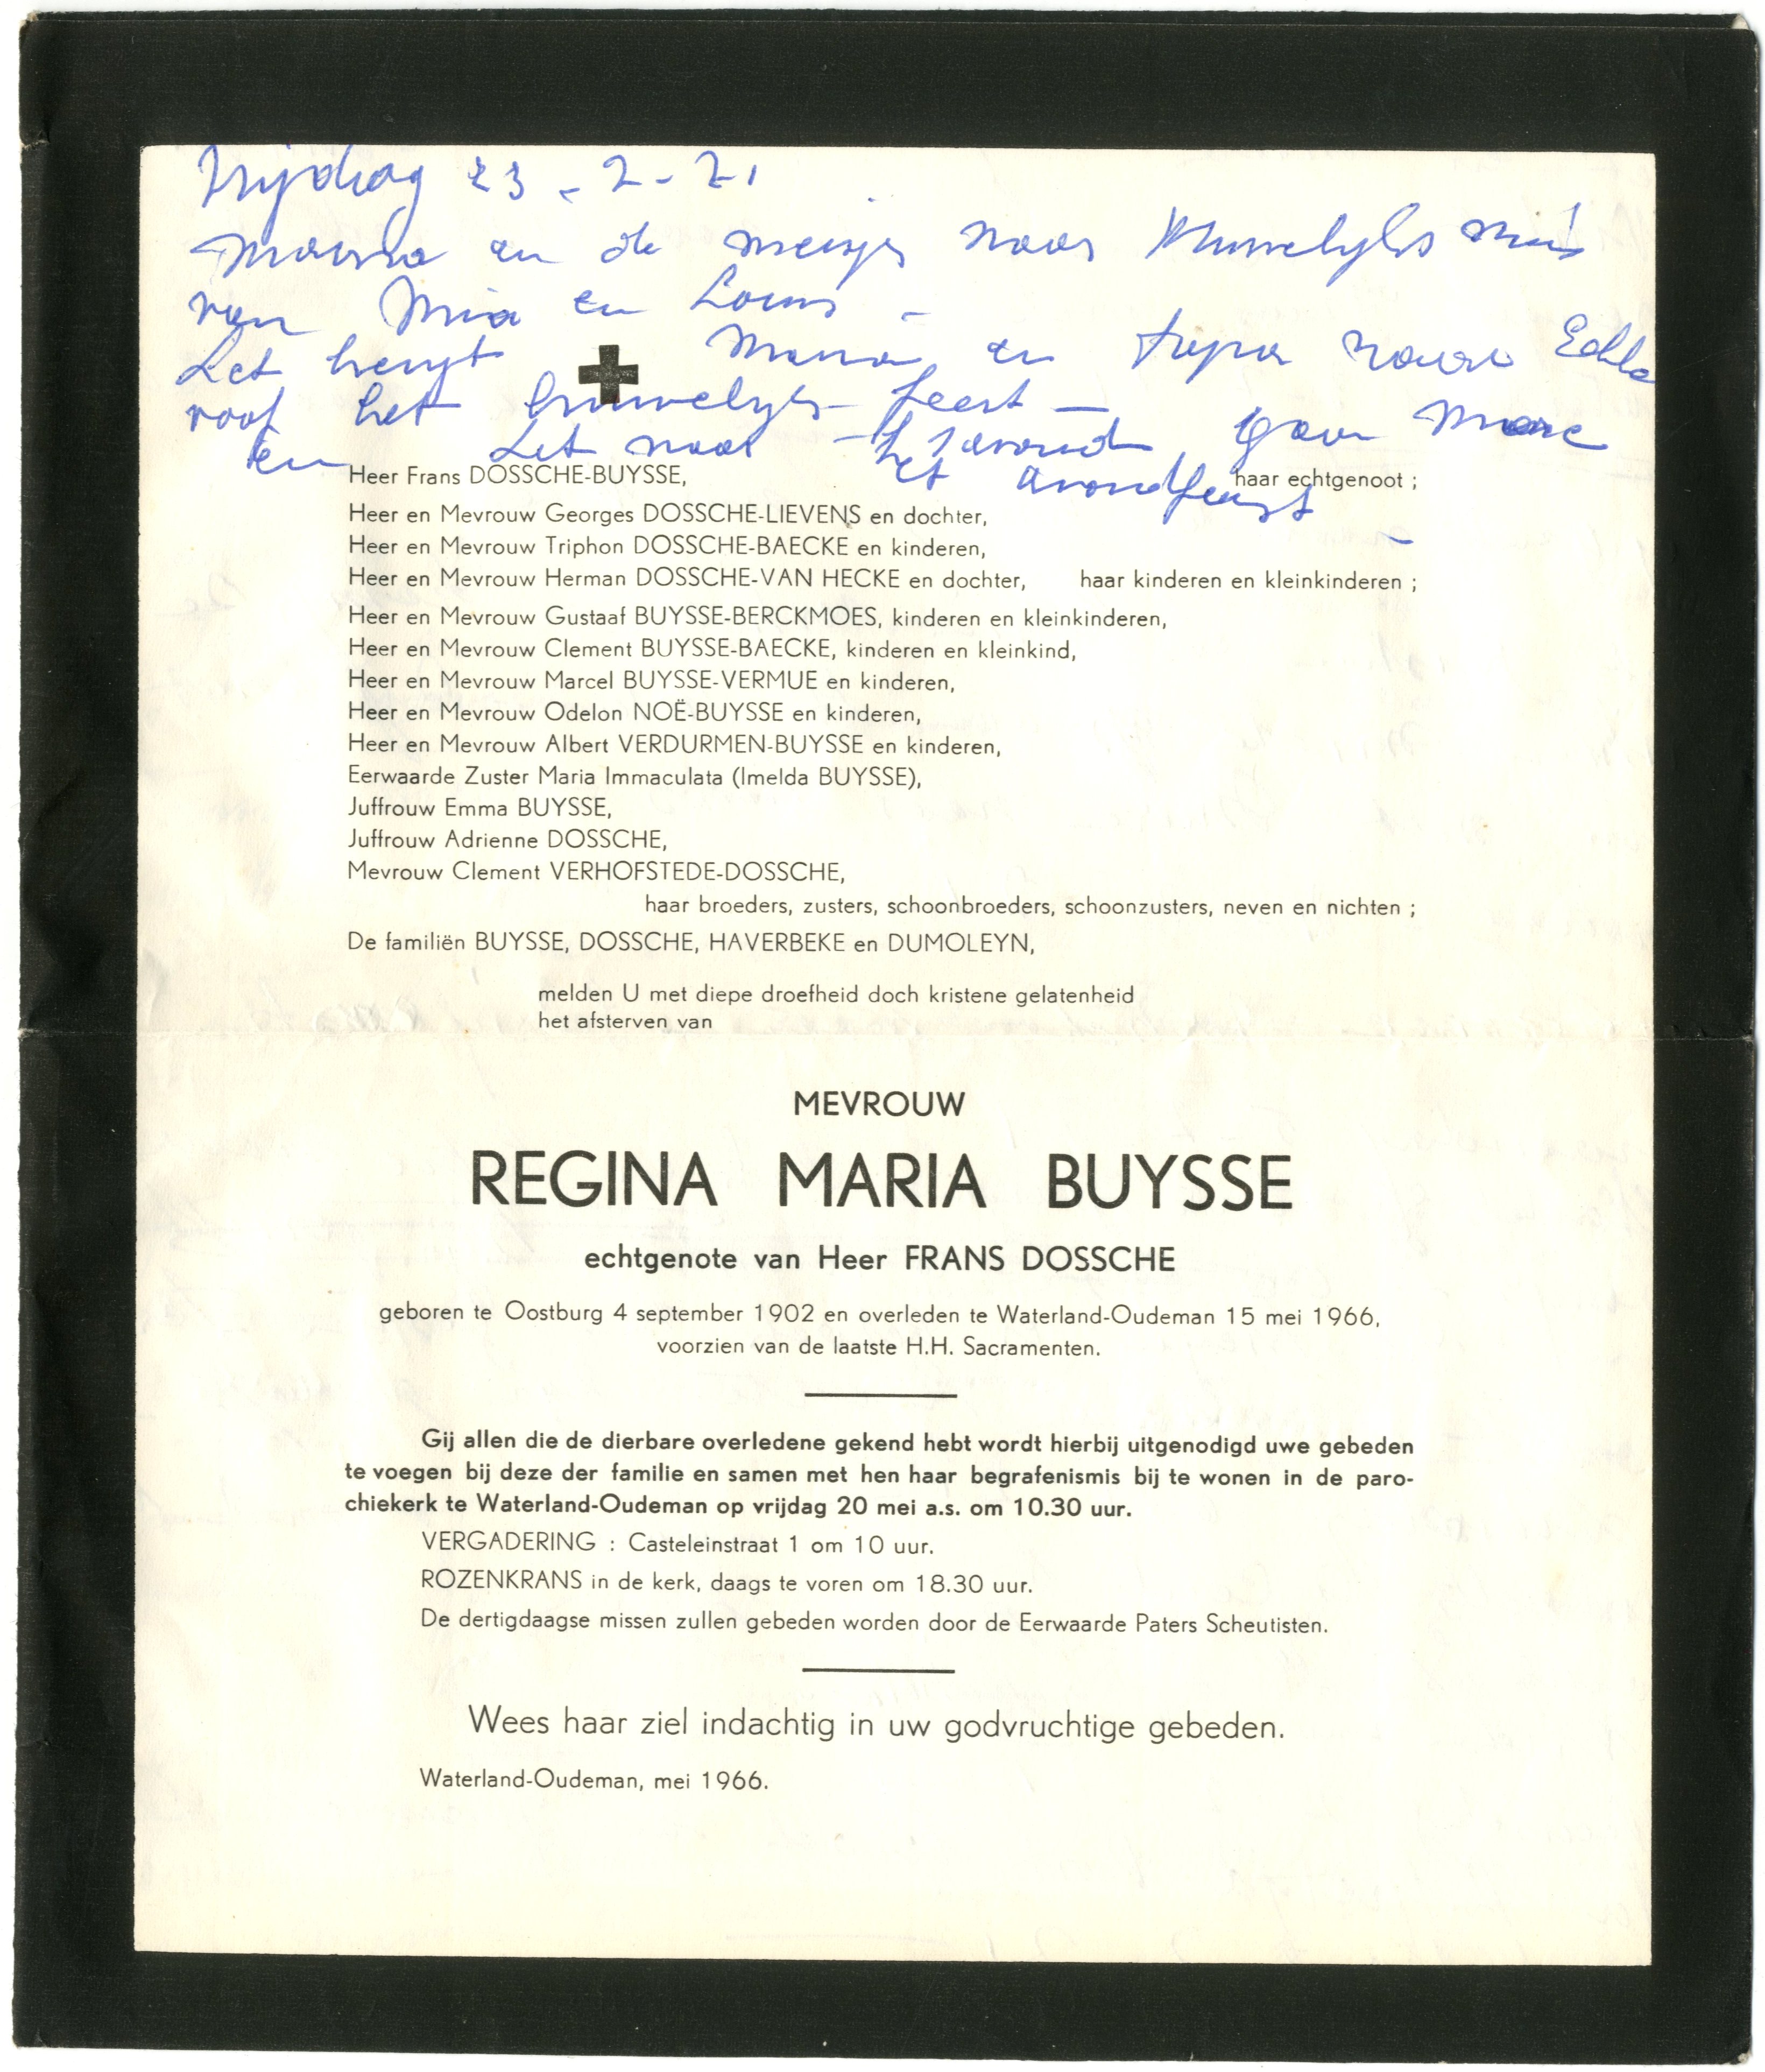 Vrijdag 23-7-71
Mama en de meisjes naar Huwelijks mis
van Mia en Louis -
Let brengt Mama en papa naar
voor het huwelijks feest -
en Let naar 's avonds gaan Marc
het avondfeest
Heer Frans DOSSCHE-BUYSSE, haar echtgenoot ;
Heer en Mevrouw Georges DOSSCHE-LIEVENS en dochter,
Heer en Mevrouw Triphon DOSSCHE-BAECKE en kinderen,
Heer en Mevrouw Herman DOSSCHE-VAN HECKE en dochter, haar kinderen en kleinkinderen ;
Heer en Mevrouw Gustaaf BUYSSE-BERCKMOES, kinderen en kleinkinderen,
Heer en Mevrouw Clement BUYSSE-BAECKE, kinderen en kleinkind,
Heer en Mevrouw Marcel BUYSSE-VERMUE en kinderen,
Heer en Mevrouw Odelon NOË-BUYSSE en kinderen,
Heer en Mevrouw Albert VERDURMEN-BUYSSE en kinderen,
Eerwaarde Zuster Maria Immaculata (Imelda BUYSSE),
Juffrouw Emma BUYSSE,
Juffrouw Adrienne DOSSCHE,
Mevrouw Clement VERHOFSTEDE-DOSSCHE,
haar broeders, zusters, schoonbroeders, schoonzusters, neven en nichten ;
De familiën BUYSSE, DOSSCHE, HAVERBEKE en DUMOLEYN,
melden U met diepe droefheid doch kristene gelatenheid
het afsterven van
MEVROUW
REGINA MARIA BUYSSE
echtgenote van Heer FRANS DOSSCHE
geboren te Oostburg 4 september 1902 en overleden te Waterland-Oudeman 15 mei 1966,
voorzien van de laatste H.H. Sacramenten.
Gij allen die de dierbare overledene gekend hebt wordt hierbij uitgenodigd uwe gebeden
te voegen bij deze der familie en samen met hen haar begrafenismis bij te wonen in de paro-
chiekerk te Waterland-Oudeman op vrijdag 20 mei a.s. om 10.30 uur.
VERGADERING : Casteleinstraat 1 om 10 uur.
ROZENKRANS in de kerk, daags te voren om 18.30 uur.
De dertigdaagse missen zullen gebeden worden door de Eerwaarde Paters Scheutisten.
Wees haar ziel indachtig in uw godvruchtige gebeden.
Waterland-Oudeman, mei 1966.